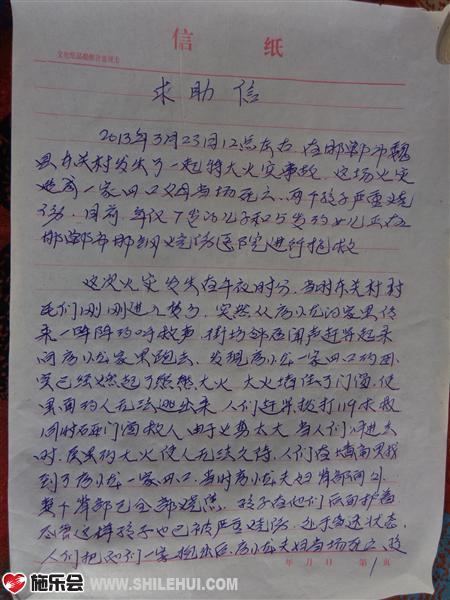 信 纸
求助信
2013年3月23日12点左右，在邯郸市魏
县东关村发生了一起特大火灾事故，这场火灾
造成一家四口父母当场死亡，两个孩子严重烧
伤，目前，年仅7岁的儿子和5岁的女儿正在
邯郸市邯钢烧伤医院进行抢救
这次火灾发生在午夜时分，当时东关村村
民们刚刚进入梦乡，突然从房小龙的家里传
来一阵阵的呼救声，街坊邻居闻声赶紧起来
向房小龙家里跑去，发现房小龙一家四口的卧
室已经燃起了熊熊大火，大火堵住了门窗，使
里面的人无法逃出来，人们赶紧拨打119求救
同时砸门窗救人，由于火势太大，当人们冲进去
时，屋里的大火使人无法久待，人们在墙角里找
到了房小龙一家四口，当时房小龙夫妇背部向外，
整个背部已全部烧焦，孩子在他们后面护着
尽管这样孩子也已被严重烧伤，处于昏迷状态，
人们把他们一家抢出后，房小龙夫妇当场死亡，
年 月 日 第 1 页
施乐会 WWW.SHILEHUI.COM